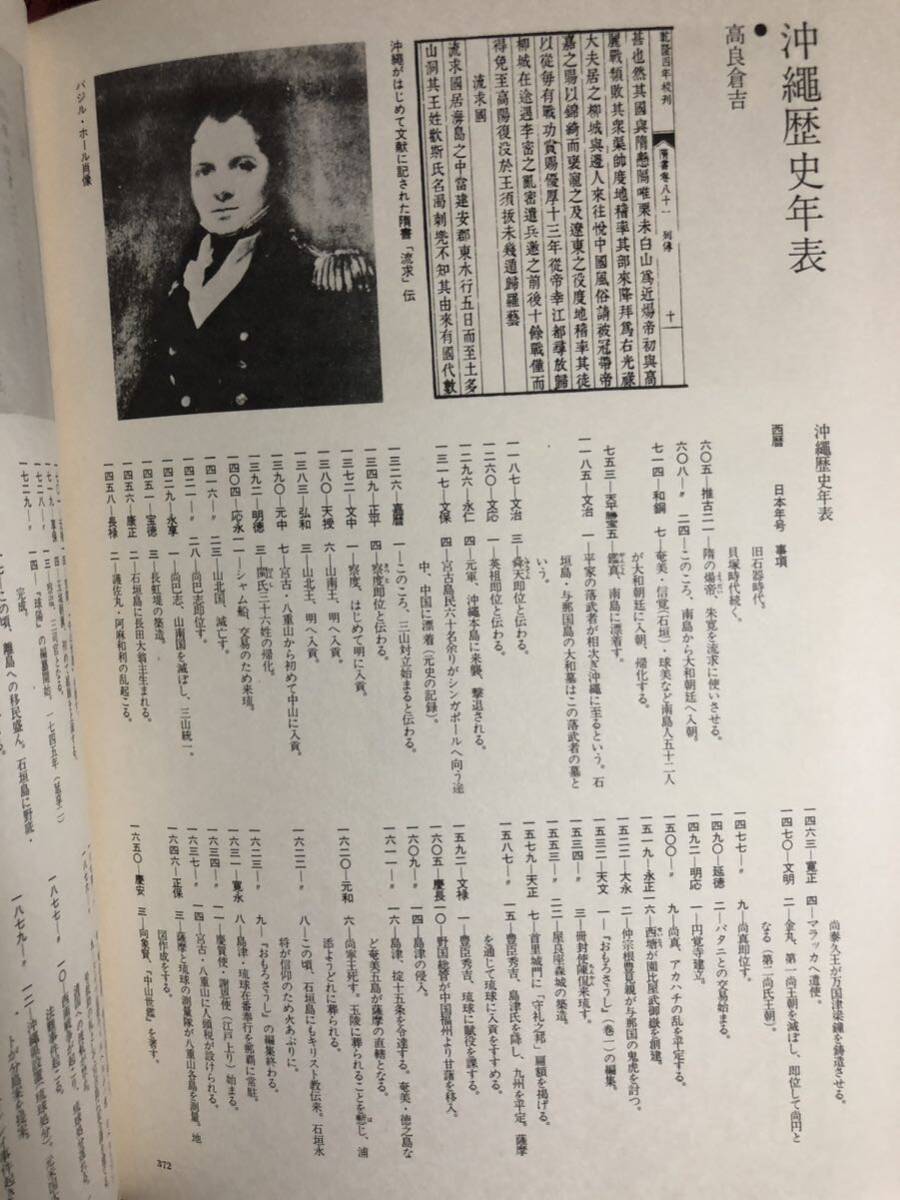 沖繩歴史年表
●高良倉吉
乾隆四年校刊
隋書卷八十一
列傳
十
甚也然其國與隋懸隔唯粟末白山爲近煬帝初與高
麗戰頻敗其衆渠帥度地稽率其部來降拜爲右光祿
大夫居之柳城與邊人來往悅中國風俗請被冠帶帝
嘉之賜以錦綺而褒寵之及遼東之役度地稽率其徒
以從每有戰功賞賜優厚十三年從帝幸江都尋放歸
柳城在途遇李密之亂密遣兵邀之前後十餘戰僅而
得免至高陽復没於王須拔未幾遁歸羅藝
流求國
流求國居海島之中當建安郡東水行五日而至土多
山洞其王姓歡斯氏名渴刺兜不知其由來有國代數
沖繩がはじめて文献に記された隋書「流求」伝
バジル・ホール肖像
沖繩歴史年表
西暦 日本年号 事項
旧石器時代。
貝塚時代続く。
六〇五―推古一三―隋の煬帝、朱寛を流求に使いさせる。
六〇八―〃 二四―このころ、南島から大和朝廷へ入朝。
七一四―和銅 七―奄美・信覚(石垣)・球美など南島人五十二人
が大和朝廷に入朝、帰化する。
七五三―天平勝宝五―鑑真、南島に漂着す。
一一八五―文治 一―平家の落武者が相次ぎ沖繩に至るという。石
垣島・与那国島の大和墓はこの落武者の墓と
いう。
一一八七―文治 三―舜天即位と伝わる。
一二六〇―文応 一―英祖即位と伝わる。
一二九六―永仁 四―元軍、沖繩本島に来襲、撃退される。
一三一七―文保 一―宮古島民六十名余りがシンガポールへ向う途
中、中国に漂着(元史の記録)。
一三二六―嘉暦 一―このころ、三山対立始まると伝わる。
一三四九―正平 四―察度即位と伝わる。
一三七二―文中 一―察度、はじめて明に入貢。
一三八〇―天授 六―山南王、明へ入貢。
一三八三―弘和 三―山北王、明へ入貢。
一三九〇―元中 七―宮古・八重山から初めて中山に入貢。
一三九二―明徳 三―閩氏三十六姓の帰化。
一四〇四―応永一一―シャム船、交易のため来琉。
一四一六―〃 二三―山北国、滅亡す。
一四二一―〃 二八―尚巴志即位す。
一四二九―永享 一―尚巴志、山南国を滅ぼし、三山統一。
一四五一―宝徳 三―長虹堤の築造。
一四五六―康正 二―石垣島に長田大翁主生まれる。
一四五八―長禄 二―護佐丸・阿麻和利の乱起こる。
尚泰久王が万国津梁鐘を鋳造させる。
一四六三―寛正 四―マラッカへ遣使。
一四七〇―文明 二―金丸、第一尚王朝を滅ぼし、即位して尚円と
なる(第二尚氏王朝)。
一四七七―〃 九―尚真即位す。
一四九〇―延徳 二―パタニとの交易始まる。
一四九二―明応 一―円覚寺建立。
一五〇〇―〃 九―尚真、アカハチの乱を平定する。
一五一九―永正一六―西塘が園比屋武御嶽を創建。
一五二二―大永 二―仲宗根豊見親が与那国の鬼虎を討つ。
一五三二―天文 一―『おもろさうし』(巻一)の編集。
一五三四―〃 三―冊封使陳侃来琉す。
一五五三―〃 二二―屋良座森城の築造。
一五七九―天正 七―首里城門に「守礼之邦」扁額を揚げる。
一五八七―〃 一五―豊臣秀吉、島津氏を降し、九州を平定。薩摩
を通じて琉球に入貢をすすめる。
一五九二―文禄 一―豊臣秀吉、琉球に賦役を課す。
一六〇五―慶長一〇―野国総管が中国福州より甘藷を移入。
一六〇九―〃 一四―島津の侵入。
一六一一―〃 一六―島津、掟十五条を令達する。奄美・徳之島な
ど奄美五島が薩摩の直轄となる。
一六二〇―元和 六―尚寧王死す。玉陵に葬られることを慙じ、浦
添ようどれに葬られる。
一六二二―〃 八―この頃、石垣島にもキリスト教伝来。石垣永
将が信仰のため火あぶりに。
一六二三―〃 九―『おもろさうし』の編集終わる。
一六三一―寛永 八―島津、琉球在番奉行を那覇に常駐。
一六三四―〃 一一―慶賀使・謝恩使(江戸上り)始まる。
一六三七―〃 一四―宮古・八重山に人頭税が設けられる。
一六四六―正保 三―薩摩と琉球の測量隊が八重山各島を測量。地
図作成をする。
一六五〇―慶安 三―向象賢、『中山世鑑』を著す。
372
一七二八―〃
一七二九―〃
『球陽』の編纂開始。一七四五年
完成。
この頃、離島への移民盛ん。石垣島に野底・
一八七七―〃 一〇
一八七九―〃 一二